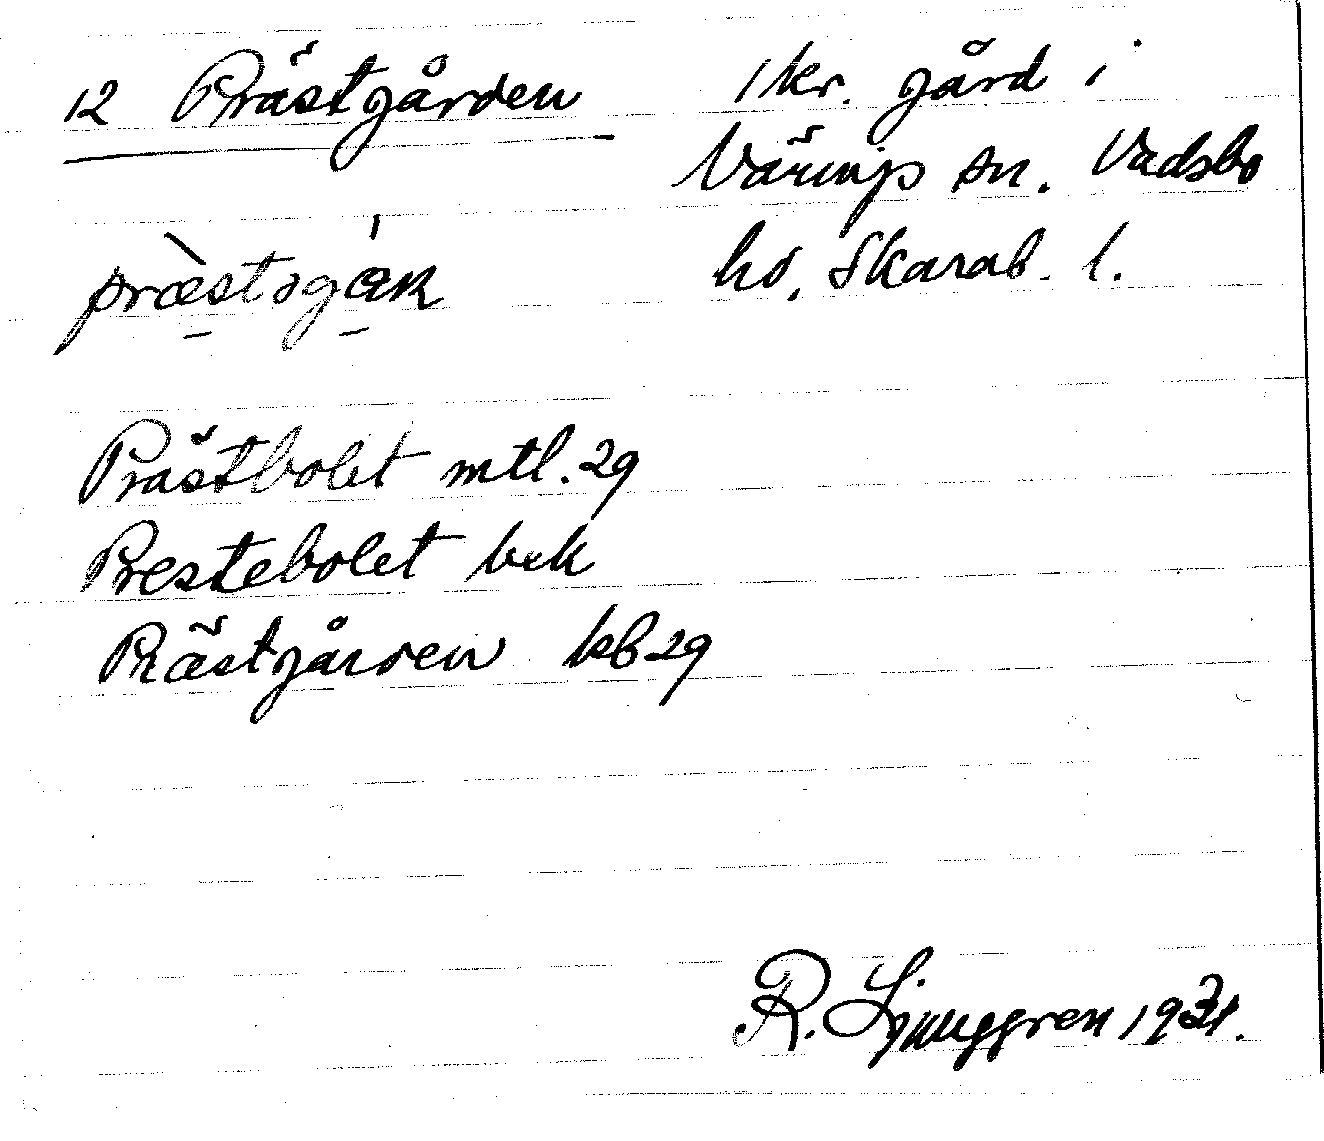 12 Prästgården
1 kr. gård i
Värings sn. Vadsbo
hd. Skarab. l.
præ̀stəgá̩ɴ
Prästbolet mtl. 29
Prestebolet bek
Prästgården kb 29
R. Ljunggren 1931.